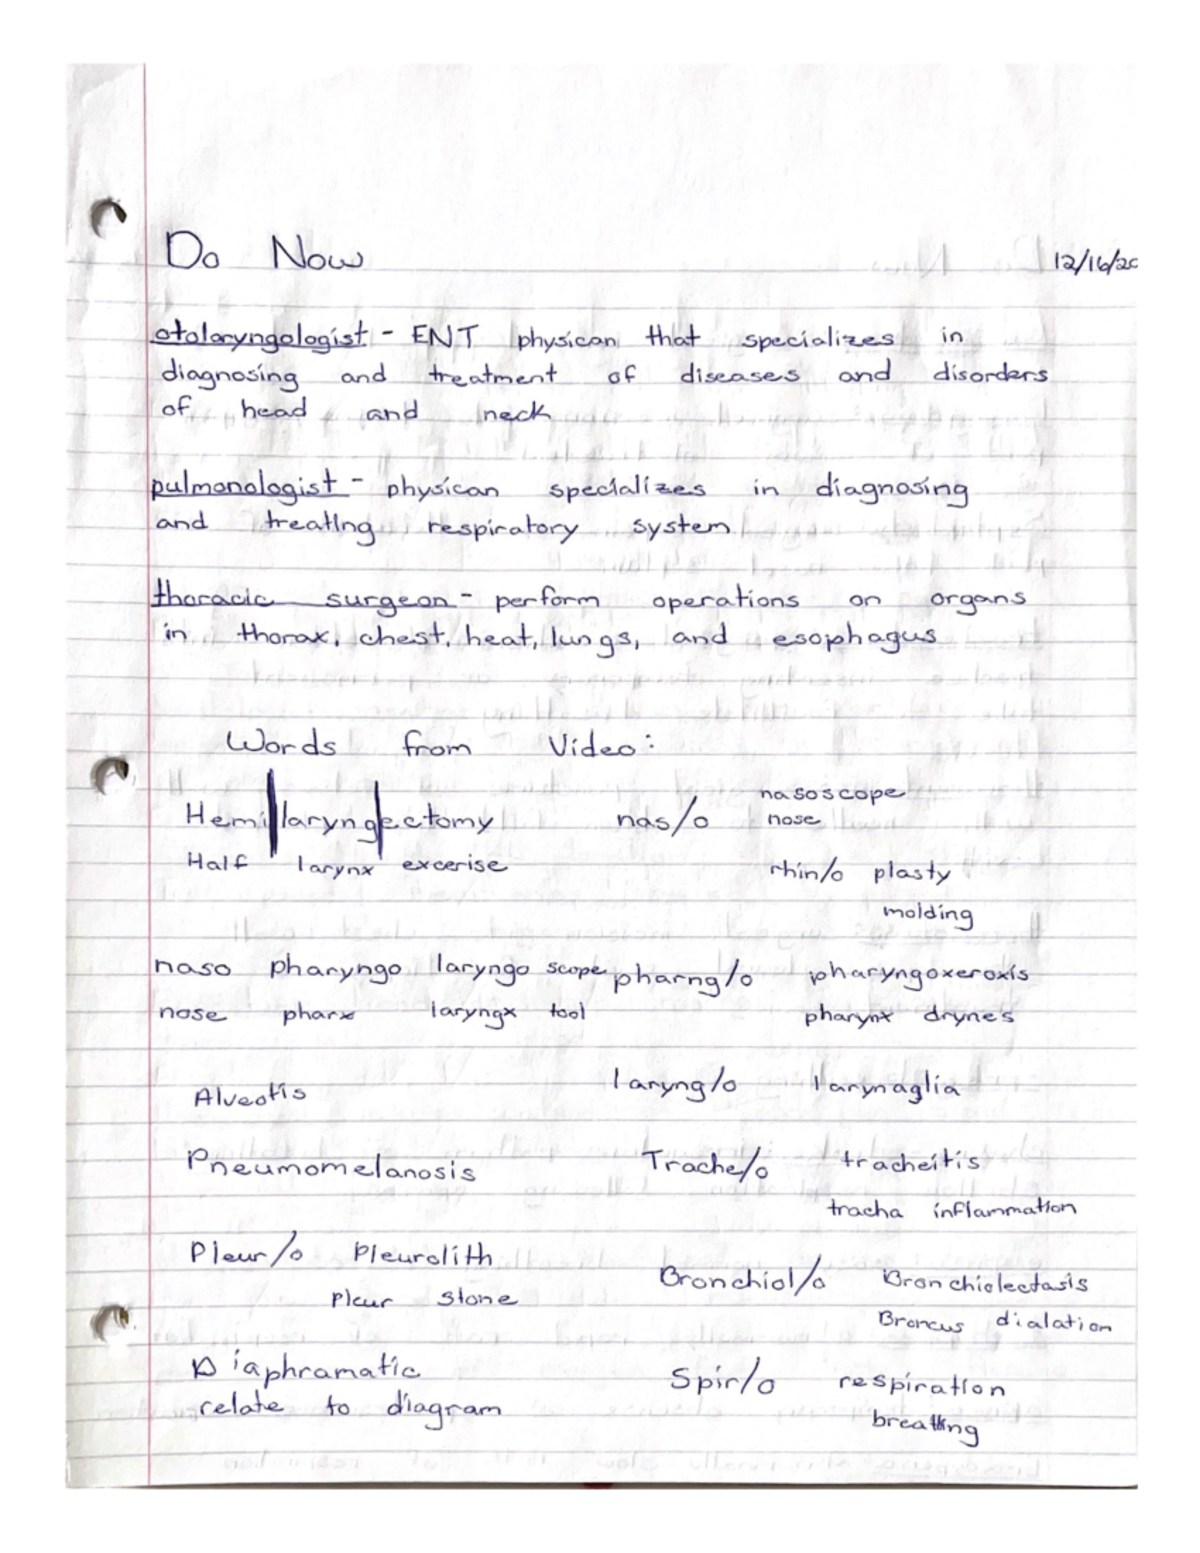 Do Now
12/16/20
otolaryngologist - ENT physican that specializes in
diagnosing and treatment of diseases and disorders
of head and neck
pulmonologist - physican specializes in diagnosing
and treating respiratory system
thoracic surgeon - perform operations on organs
in thorax, chest, heat, lungs, and esophagus
Words from Video:
Hemi|laryng|ectomy
Half larynx excerise
nas/o
nasoscope
nose
rhin/o plasty
molding
naso pharyngo laryngo scope
nose pharx laryngx tool
pharng/o pharyngoxeroxis
pharynx drynes
Alveotis
laryng/o larynaglia
Pneumomelanosis
Trache/o tracheitis
tracha inflammation
Pleur/o Pleurolith
Pleur stone
Bronchiol/o Bronchiolectasis
Broncus dialation
Diaphramatic
relate to diagram
Spir/o respiration
breathng